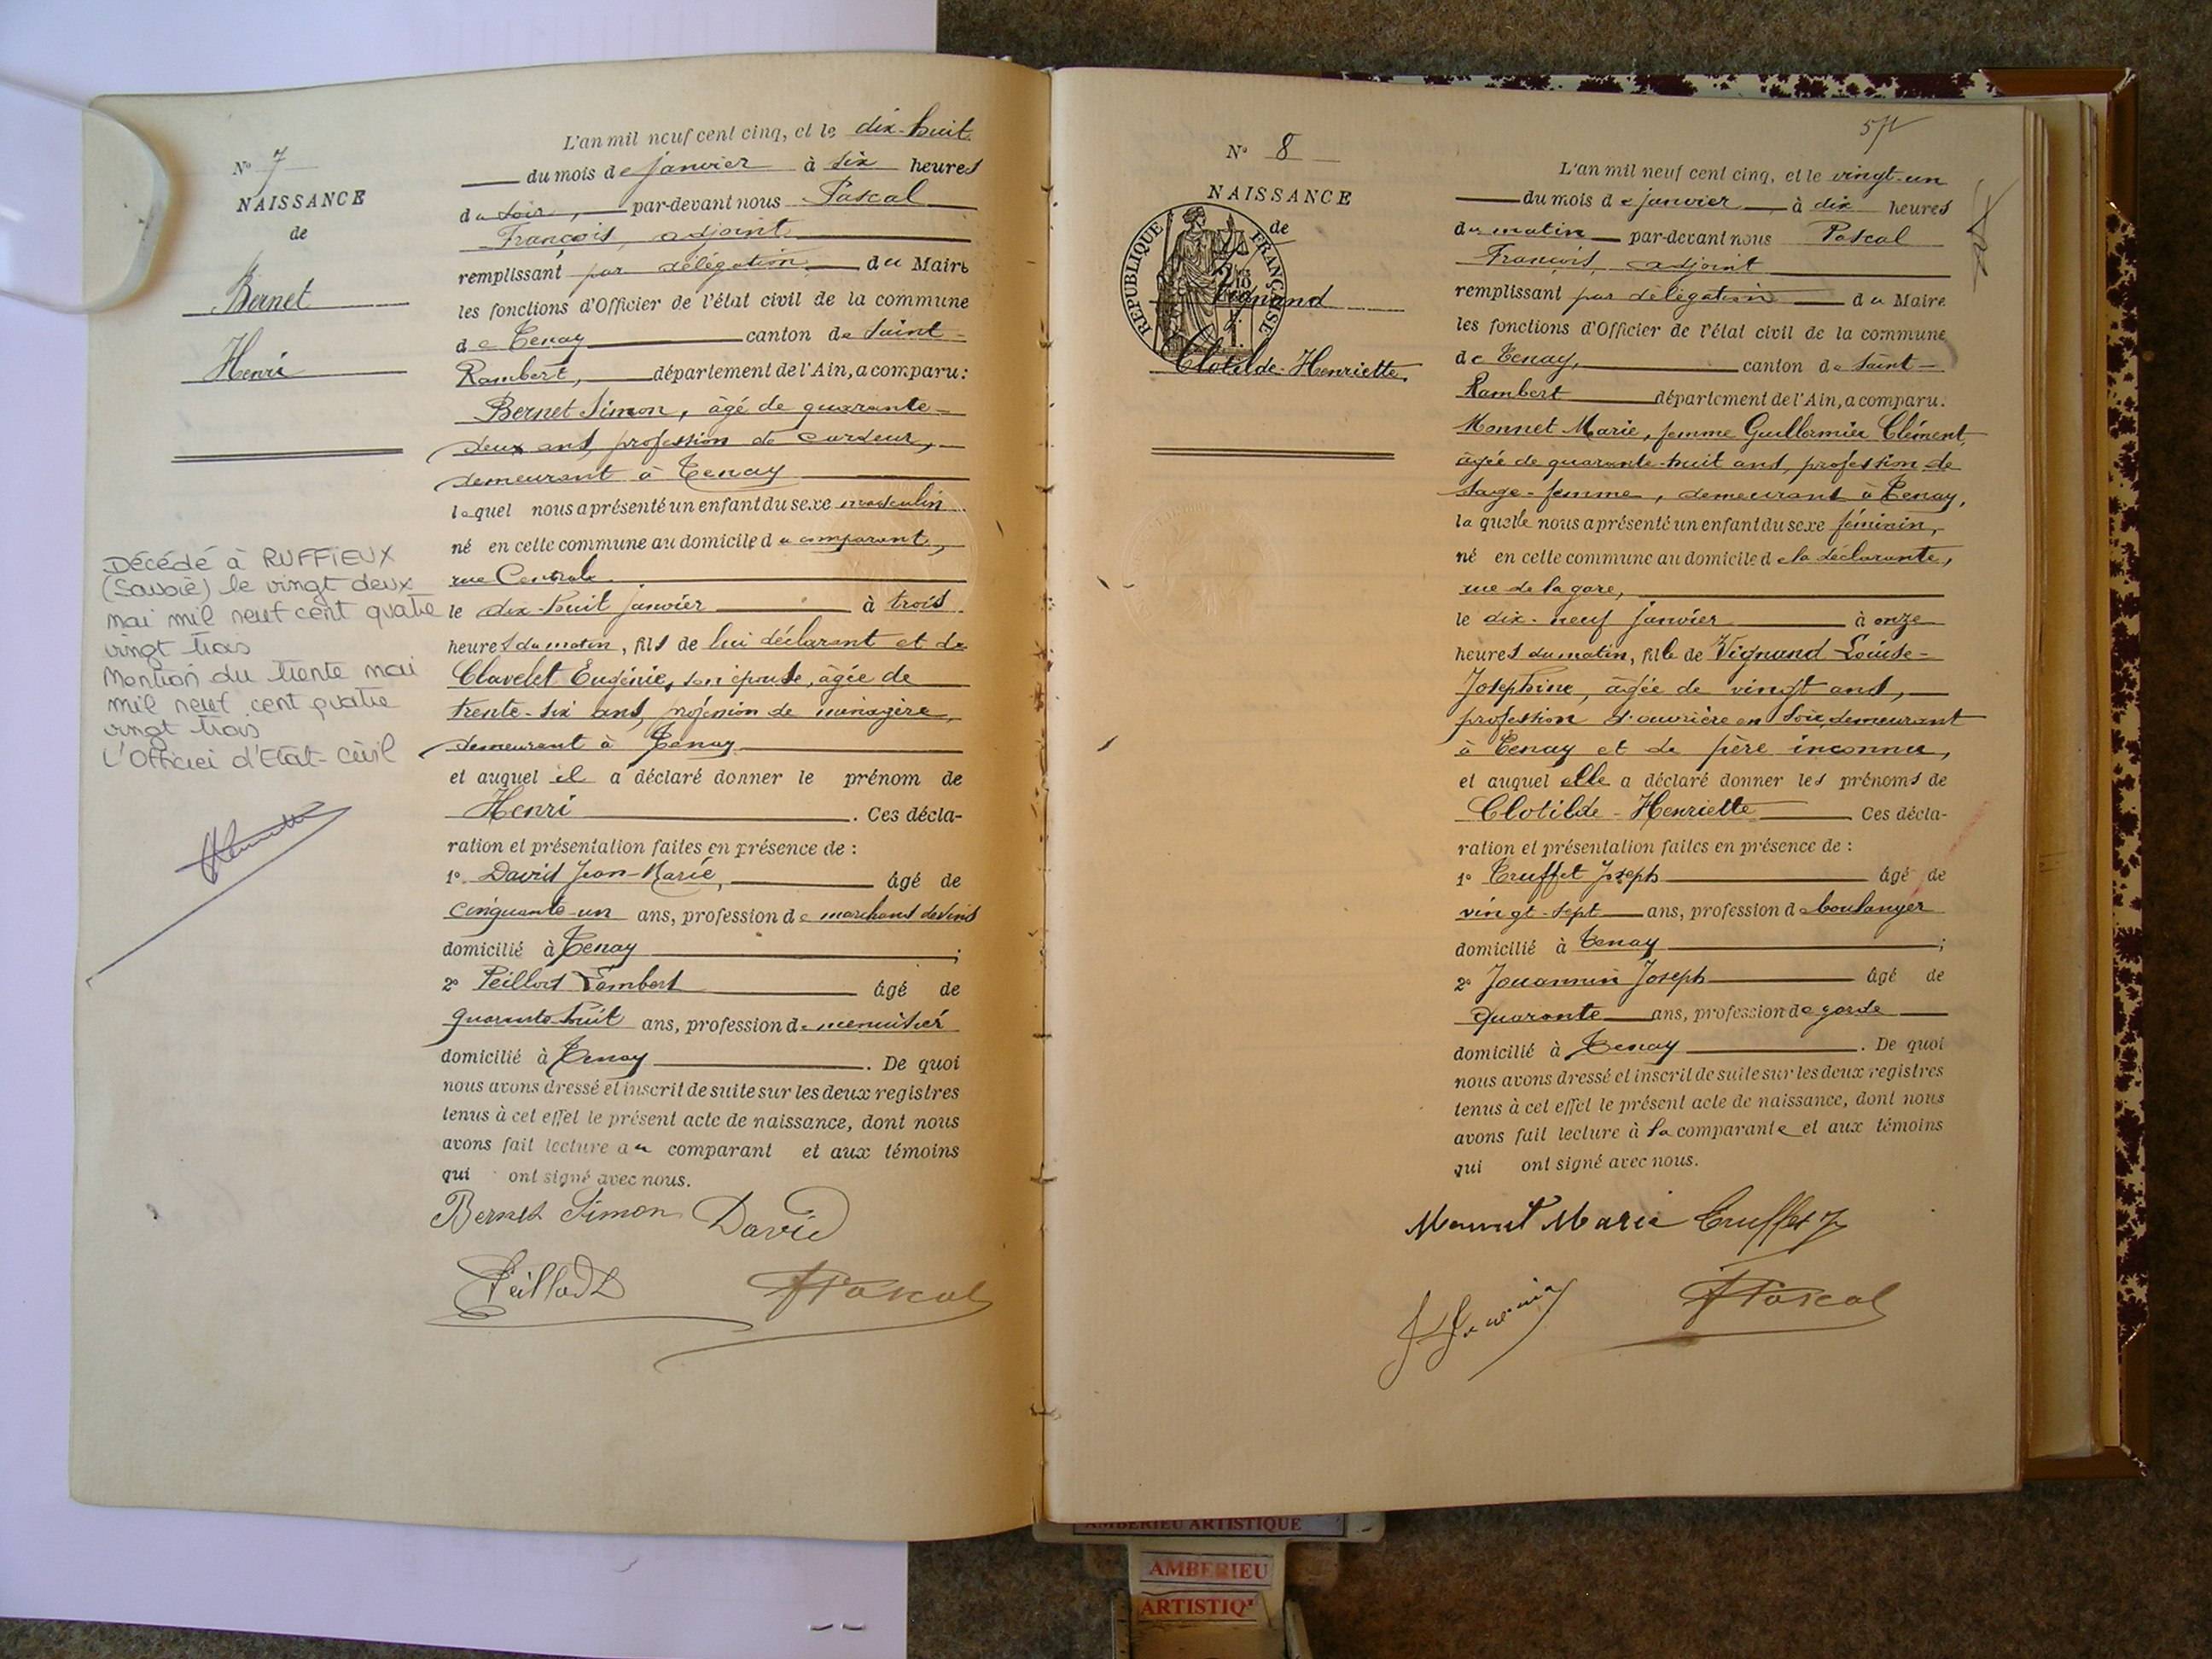 N° 7
NAISSANCE
de
Bernet
Henri
Décédé à RUFFIEUX
(Savoie) le vingt deux
mai mil neuf cent quatre
vingt trois
Mention du trente mai
mil neuf cent quatre
vingt trois
L'Officier d'Etat-Civil
L'an mil neuf cent cinq, et le dix-huit
du mois de janvier à six heures
du soir, par-devant nous Pascal
François, adjoint
remplissant par délégation du Maire
les fonctions d'Officier de l'état civil de la commune
de Tenay canton de Saint-
Rambert, département de l'Ain, a comparu:
Bernet Simon, âgé de quarante-
deux ans, profession de cardeur,
demeurant à Tenay
lequel nous a présenté un enfant du sexe masculin
né en cette commune au domicile du comparant,
rue Centrale
le dix-huit janvier à trois
heures du matin, fils de lui déclarant et de
Clavelet Eugénie, son épouse, âgée de
trente-six ans, profession de ménagère,
demeurant à Tenay
et auquel il a déclaré donner le prénom de
Henri. Ces décla-
ration et présentation faites en présence de :
1° David Jean-Marie, âgé de
cinquante-un ans, profession de marchand de vins
domicilié à Tenay ;
2° Peillod Lambert âgé de
quarante-huit ans, profession de menuisier
domicilié à Tenay. De quoi
nous avons dressé et inscrit de suite sur les deux registres
tenus à cet effet le présent acte de naissance, dont nous
avons fait lecture au comparant et aux témoins
qui ont signé avec nous.
Bernet Simon David
Peillod L FPascal
57
N° 8
NAISSANCE
de
REPUBLIQUE FRANÇAISE
Vignand
Clotilde-Henriette
L'an mil neuf cent cinq, et le vingt-un
du mois de janvier à dix heures
du matin par-devant nous Pascal
François, adjoint
remplissant par délégation du Maire
les fonctions d'Officier de l'état civil de la commune
de Tenay, canton de Saint-
Rambert département de l'Ain, a comparu.
Monnet Marie, femme Guillermier Clément,
âgée de quarante-huit ans, profession de
sage-femme, demeurant à Tenay,
laquelle nous a présenté un enfant du sexe féminin,
né en cette commune au domicile de la déclarante,
rue de la gare,
le dix-neuf janvier à onze
heures du matin, fille de Vignand Louise-
Joséphine, âgée de vingt ans,
profession d'ouvrière en soie, demeurant
à Tenay et de père inconnu,
et auquel elle a déclaré donner les prénoms de
Clotilde-Henriette Ces décla-
ration et présentation faites en présence de :
1° Truffet Joseph âgé de
vingt-sept ans, profession de boulanger
domicilié à Tenay ;
2° Jouannin Joseph âgé de
quarante ans, profession de garde
domicilié à Tenay. De quoi
nous avons dressé et inscrit de suite sur les deux registres
tenus à cet effet le présent acte de naissance, dont nous
avons fait lecture à la comparante et aux témoins
qui ont signé avec nous.
Monnet Marie Truffet J
FPascal
AMBERIEU ARTISTIQUE
AMBERIEU
ARTISTIQ